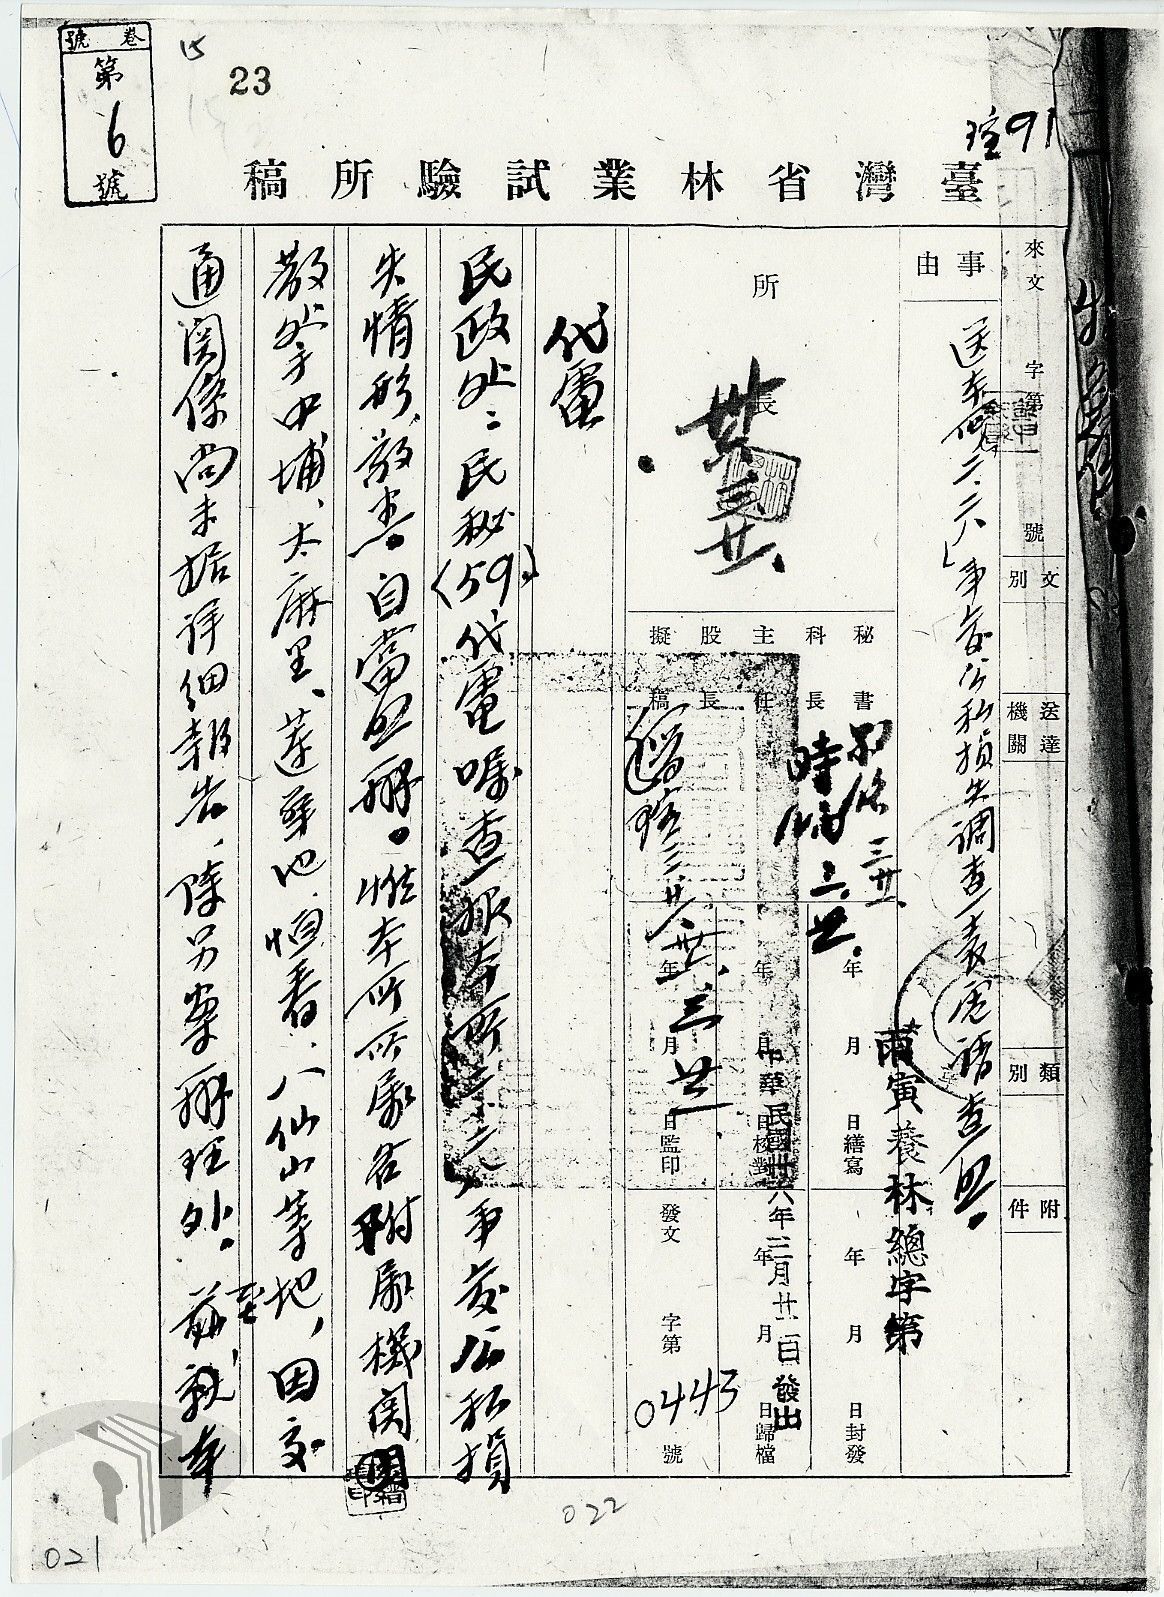 卷號
第
6
號
15
23
91
臺灣省林業試驗所稿
來文 字第 號
文別
送達機關
類別
附件
事由
送本所「二.二八」事変公私損失調查表電請查照。
所長
秘書
科長
主任
股長
擬稿
三廿
年 月 日繕寫
年 月 日封發
年 月 日校對
年 月 日歸檔
年 月 日監印
發文 字第 0443 號
寅養林總字第
中華民國卅六年三月廿二日發出
代電
民政処:民秘(59)代電囑查報本所二二八事変公私損
失情形,敬悉。自當照辦。惟本所所屬各附屬機関
散処于中埔、太麻里、蓮華池、恒春、八仙山等地,因交
通関係尚未据詳細報告,除另案辦理外。茲就本
至
022
021